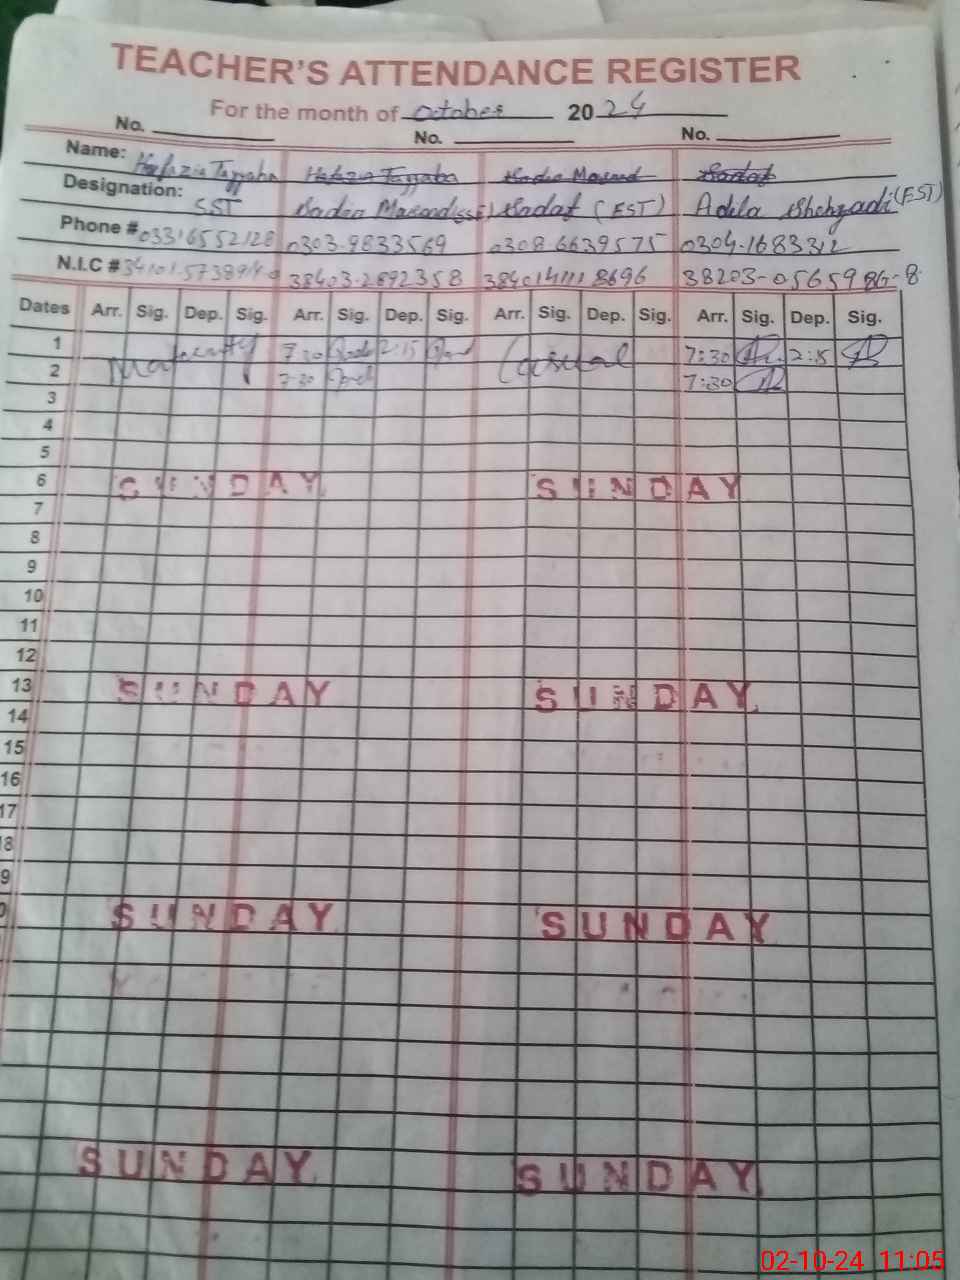 TEACHER'S ATTENDANCE REGISTER
For the month of October 2024
No. No. No.
Name: Hafazia Tayyaba Hafazia Tayyaba Sadia Masood Sadaf
Designation: SST Sadia Masood (SSE) Sadaf (EST) Adila Shehzadi (EST)
Phone # 03316552128 0303-9833569 0308-6639575 0304-1683312
N.I.C # 38403-2892358 38203-0565986-8
Dates Arr. Sig. Dep. Sig. Arr. Sig. Dep. Sig. Arr. Sig. Dep. Sig. Arr. Sig. Dep. Sig.
1 7:30 2:15 Casual 7:30 2:15
2 7:30 7:30
3
4
5
6 SUNDAY SUNDAY
7
8
9
10
11
12
13 SUNDAY SUNDAY
14
15
16
17
8
9
0 SUNDAY SUNDAY
SUNDAY SUNDAY
02-10-24 11:05